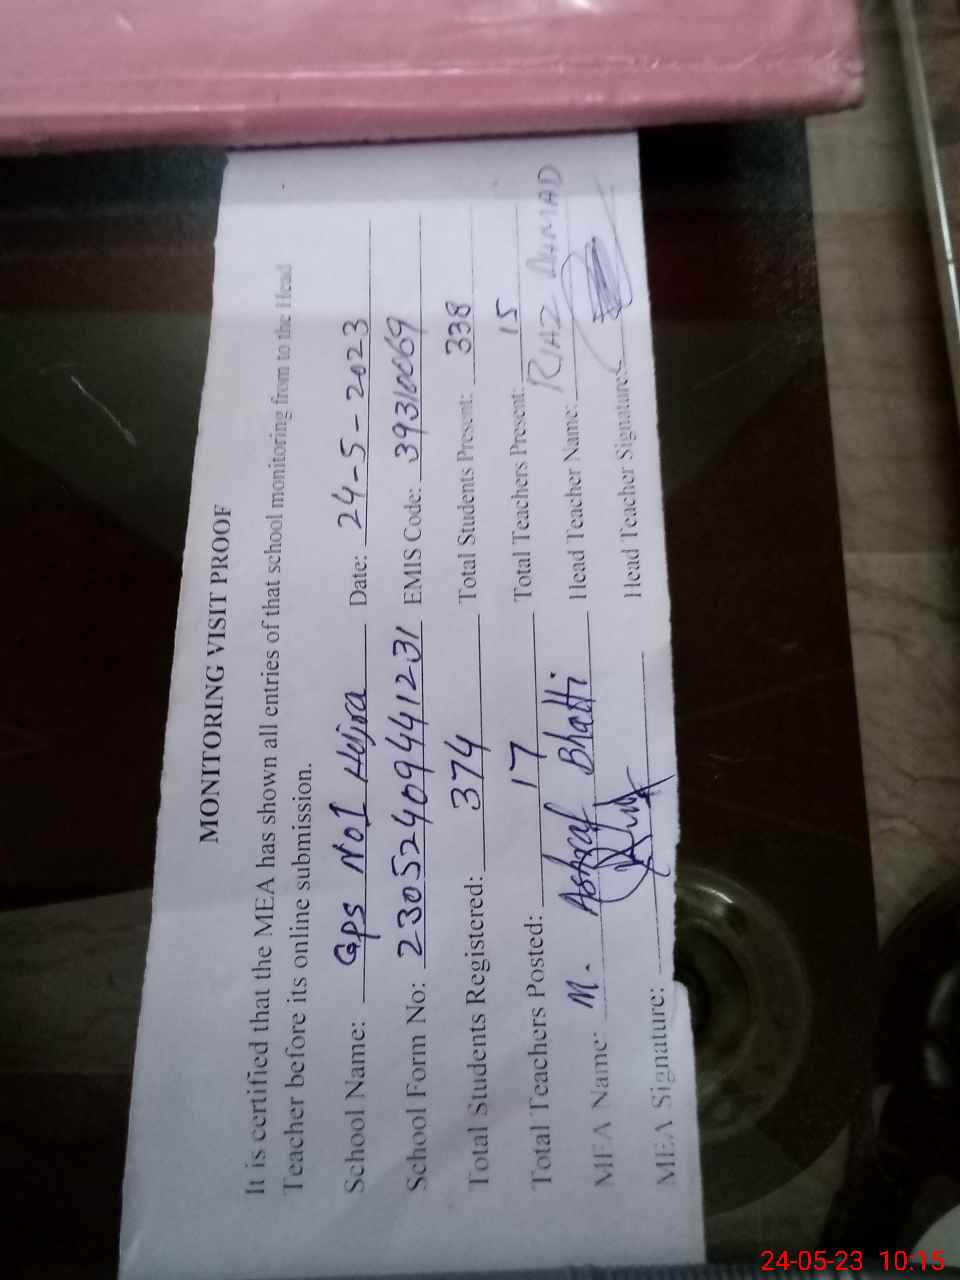 MONITORING VISIT PROOF
It is certified that the MEA has shown all entries of that school monitoring from to the Head
Teacher before its online submission.
School Name: GPS No1 Hujra Date: 24-5-2023
School Form No: 23052409441231 EMIS Code: 39310069
Total Students Registered: 374 Total Students Present: 338
Total Teachers Posted: 17 Total Teachers Present: 15
MEA Name: M. Ashraf Bhatti Head Teacher Name: RIAZ AHMAD
MEA Signature: Head Teacher Signature:
24-05-23 10:15